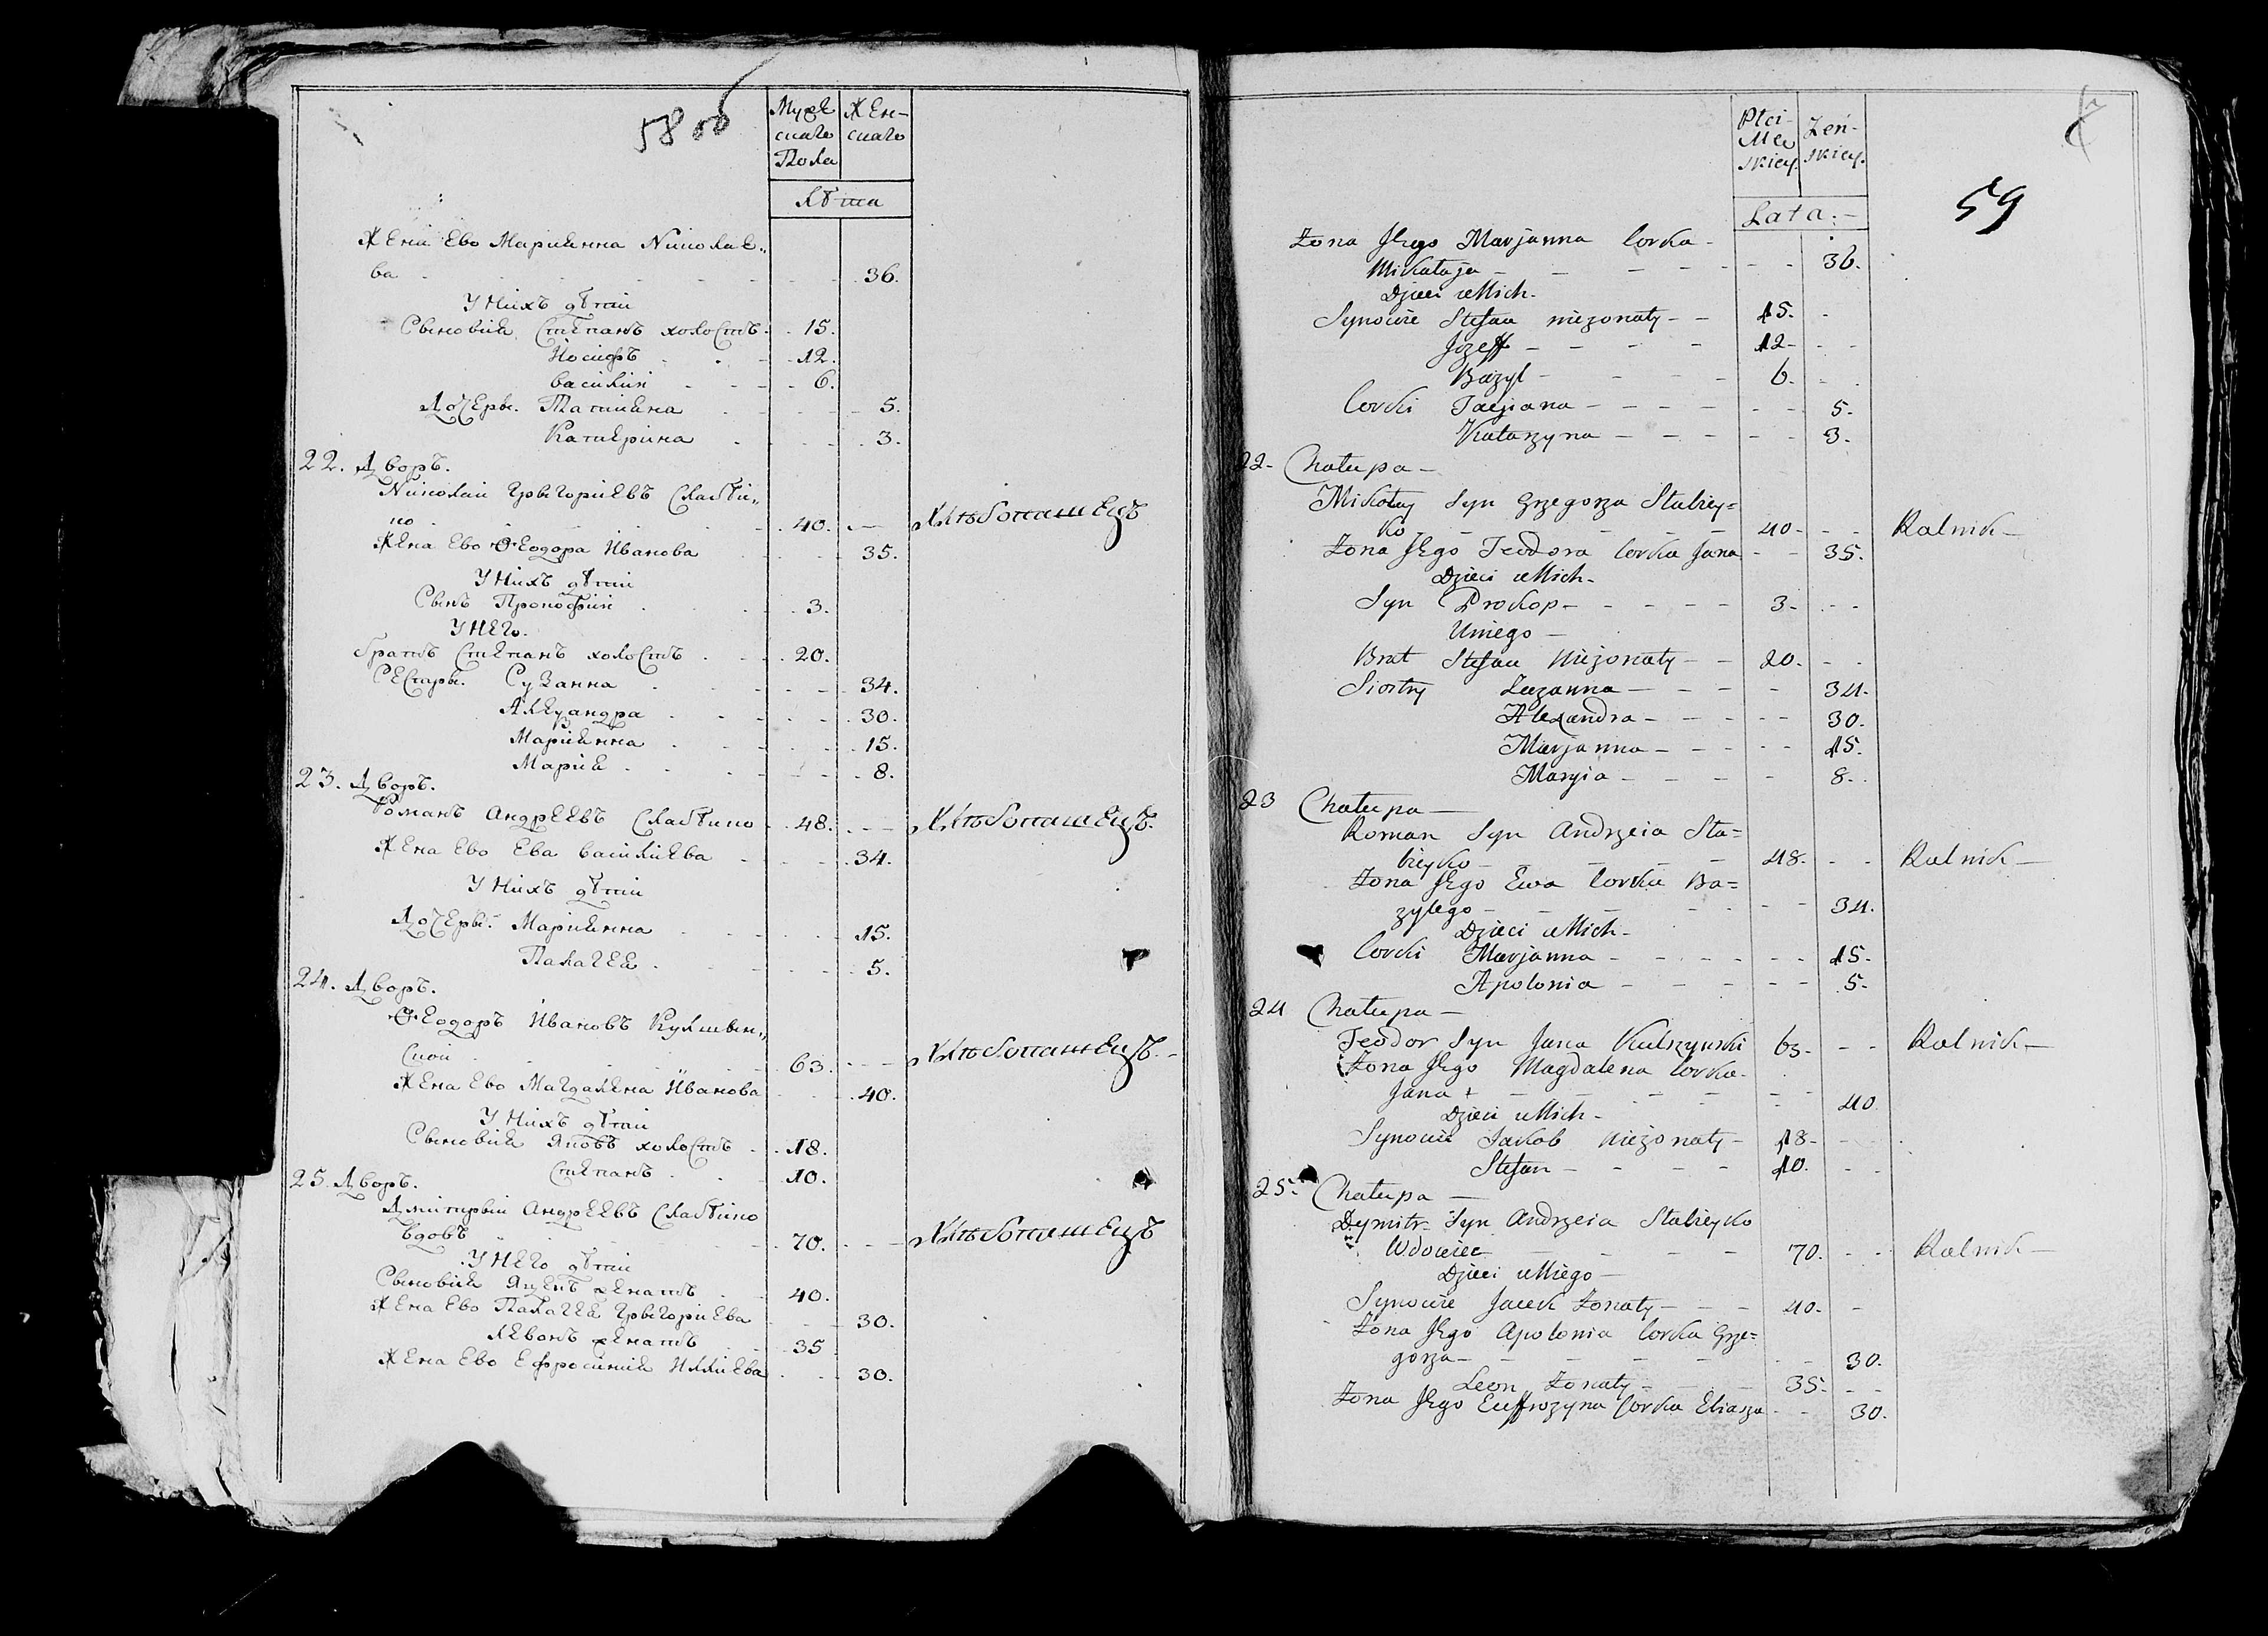 58 об
Мужескаго Пола
Женскаго
Лѣта
Жена Ево Марианна Николае„
ва - - - 36.
У Нихъ дѣти
Сыновия Степанъ холостъ - 15.
Иосифъ - 12.
Василий - 6.
Дочеры. Татияна - 5.
Катерина - 3.
22. Дворъ.
Николай Грыгориевъ Слабѣй„
ко - 40. — Хлѣбопашецъ
Жена Ево Ѳеодора Иванова - 35.
У Нихъ дѣти
Сынъ Прокофий - 3.
У Него.
Братъ Степанъ холостъ - 20.
Сестры. Сузанна - 34.
Александра - 30.
Марианна - 15.
Мария - 8.
23. Дворъ.
Романъ Андреевъ Слабѣйко - 48. — Хлѣбопашецъ.
Жена Ево Ева Василиева - 34.
У Нихъ дѣти
Дочеры. Марианна - 15.
Палагея - 5.
24. Дворъ.
Ѳеодоръ Ивановъ Кулшын„
ской - 63. — Хлѣбопашецъ.
Жена Ево Магдалена Иванова - 40.
У Нихъ дѣти
Сыновия Яковъ холостъ - 18.
Степанъ - 10.
25. Дворъ.
Дмитрый Андреевъ Слабѣйко
Вдовъ - 70. — Хлѣбопашецъ
У Него дѣти
Сыновия Яценъ женатъ - 40.
Жена Ево Палагея Грыгориева - 30.
Левонъ женатъ - 35
Жена Ево Ефросиния Иллиева - 30.
59
Płci Męskiey.
Żeńskiey.
Lata. -
Żona Jego Marjanna Corka
Mikołaja - 36.
Dzieci u Nich -
Synowie Stefan nieżonaty - 15.
Jozeff - 12 -
Bazyl - 6.
Corki Tacjana - 5.
Katarzyna - 3.
22 - Chałupa -
Mikołay Syn Grzegorza Słabiey=
ko - 40 - Rolnik -
Żona Jego Teodora Corka Jana - 35.
Dzieci u Nich -
Syn Prokop - 3 -
U niego -
Brat Stefan Nieżonaty - 20.
Siostry Zuzanna - 34.
Alexandra - 30.
Marjanna - 15.
Maryia - 8.
23 Chałupa -
Roman Syn Andrzeia Sła=
bieyko - 48. Rolnik -
Żona Jego Ewa Corka Ba=
zylego - 34.
Dzieci u Nich -
Corki Marjanna - 15 -
Apolonia - 5 -
24 Chałupa -
Teodor Syn Jana Kulszynski 63 - Rolnik -
Żona Jego Magdalena Corka
Jana - 40
Dzieci u Nich -
Synowie Jakob Nieżonaty - 18 -
Stefan - 10.
25. Chałupa -
Dymitr Syn Andrzeia Słabieyko
Wdowiec - 70. Rolnik -
Dzieci u Niego -
Synowie Jacek Żonaty - 40 -
Żona Jego Apolonia Corka Grze=
gorza - 30.
Leon Żonaty - 35 -
Żona Jego Euffrozyna Corka Eliasza - 30.